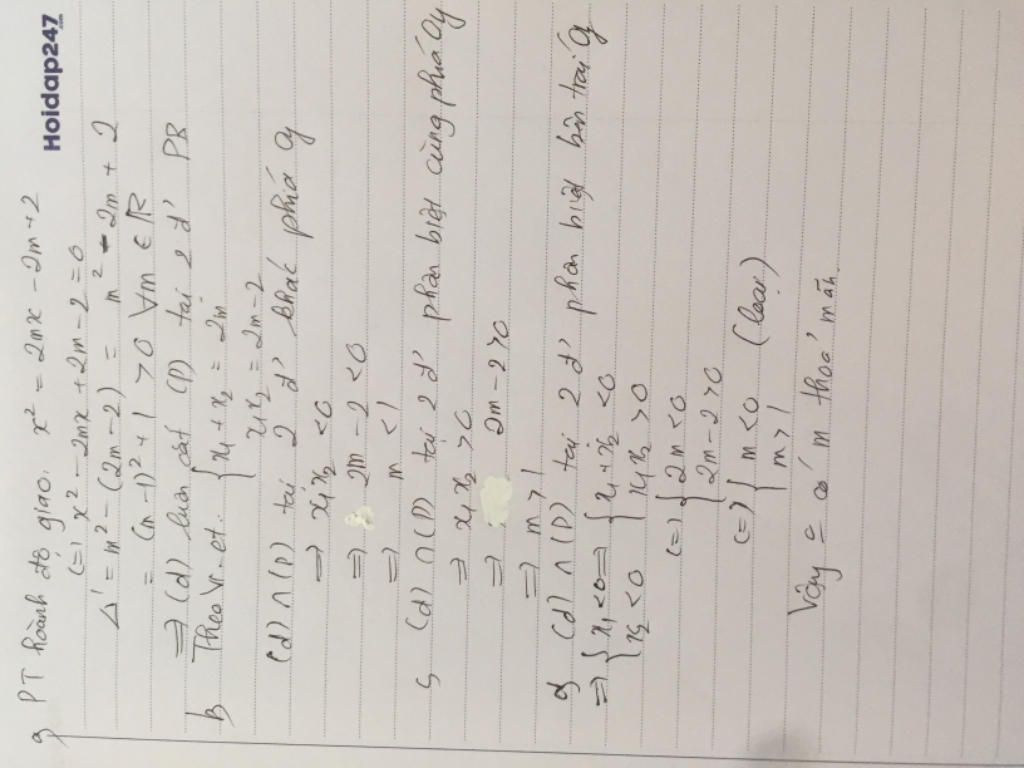 Hoidap247
.com
a, PT hoành độ giao. x² = 2mx - 2m + 2
(=) x² - 2mx + 2m - 2 = 0
Δ' = m² - (2m - 2) = m² - 2m + 2
= (m - 1)² + 1 > 0 ∀m ∈ R
=> (d) luôn cắt (P) tại 2 đ' PB
b, Theo Vi-et. { x₁ + x₂ = 2m
x₁x₂ = 2m - 2
(d) ∩ (P) tại 2 đ' khác phía Oy
=> x₁x₂ < 0
=> 2m - 2 < 0
=> m < 1
c, (d) ∩ (P) tại 2 đ' phân biệt cùng phía Oy
=> x₁x₂ > 0
=> 2m - 2 > 0
=> m > 1
d, (d) ∩ (P) tại 2 đ' phân biệt bên trái Oy
=> { x₁ < 0 => { x₁ + x₂ < 0
{ x₂ < 0 { x₁x₂ > 0
(=) { 2m < 0
{ 2m - 2 > 0
(=) { m < 0 (loại)
{ m > 1
Vậy có m thoả mãn.